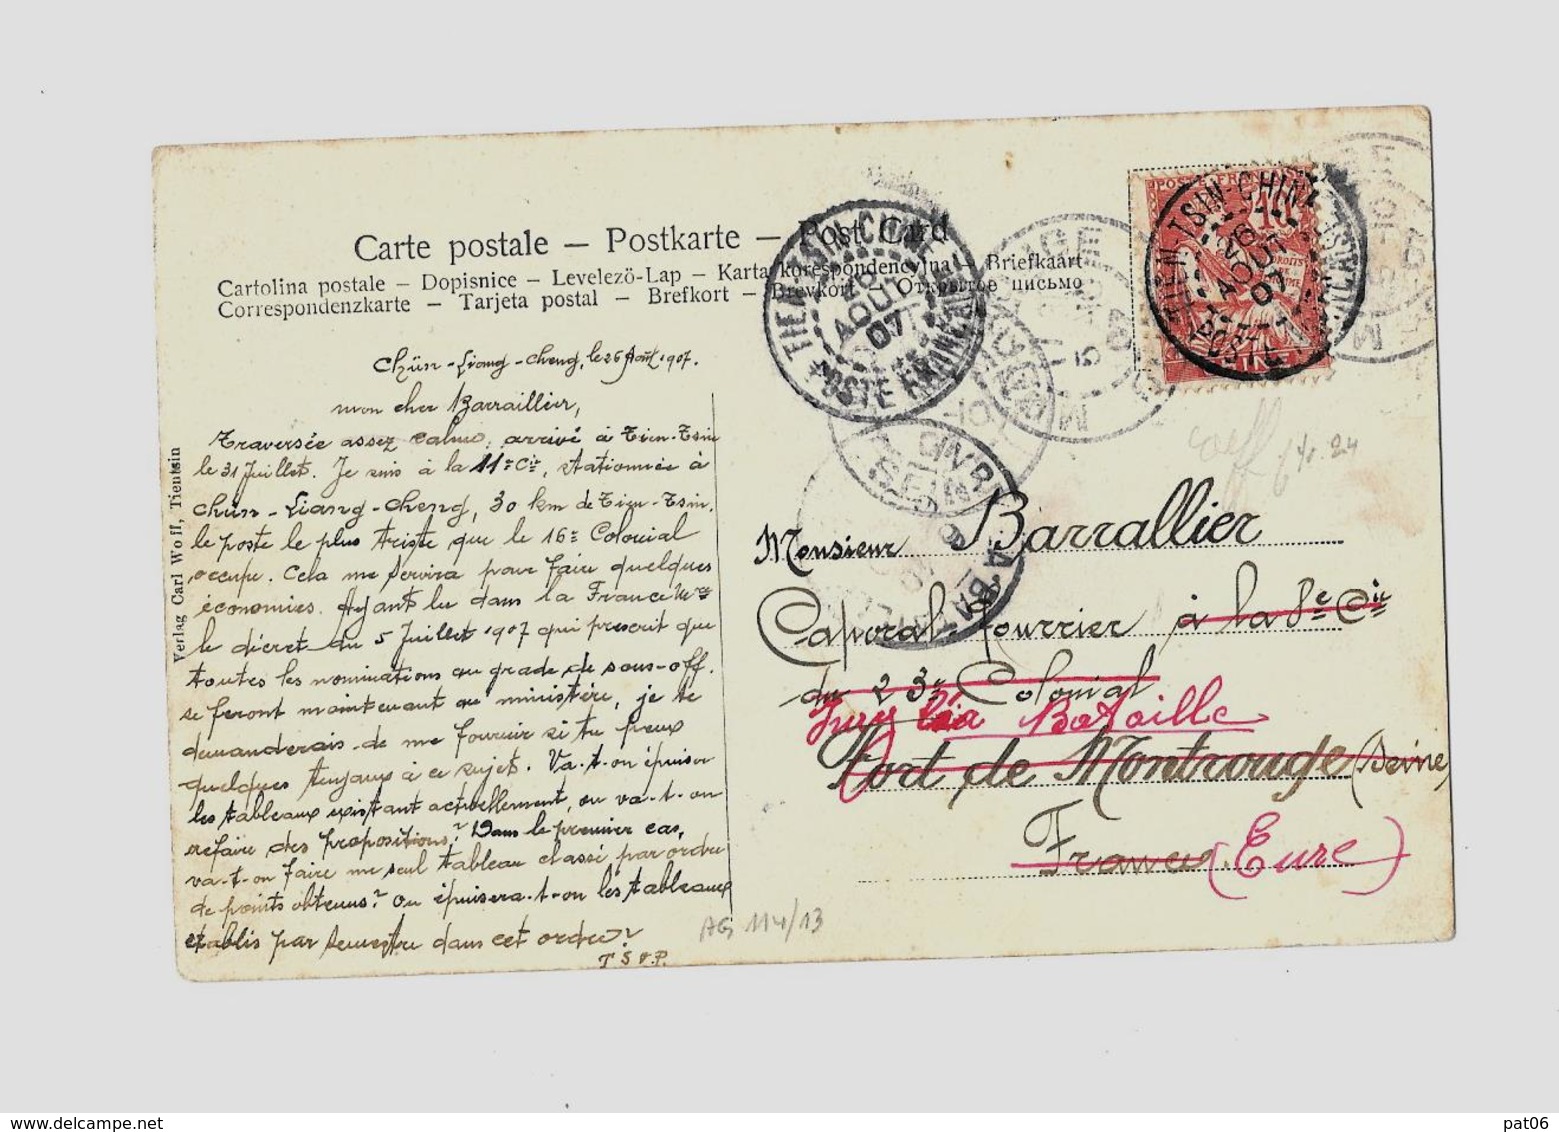 Carte postale — Postkarte — Post Card
Cartolina postale – Dopisnice – Levelezö-Lap – Karta korespondencyjna – Briefkaart
Correspondenzkarte – Tarjeta postal – Brefkort – Brevkort – Открытое письмо
Chün-Liang-Cheng, le 26 Août 1907.
mon cher Barraillier,
Traversée assez calme, arrivé à Tien-Tsin
le 31 Juillet. Je suis à la 11e Cie, stationnée à
Chün-Liang-Cheng, 30 km de Tien-Tsin.
le poste le plus triste que le 16e Colonial
occupe. Cela me servira pour faire quelques
économies. Ayant lu dans la France Mre
le décret du 5 Juillet 1907 qui prescrit que
toutes les nominations au grade de sous-off.
se feront maintenant au ministère, je te
demanderais de me fournir si tu peux
quelques tuyaux à ce sujet. Va-t-on épuiser
les tableaux existant actuellement, ou va-t-on
refaire des propositions? Dans le premier cas,
va-t-on faire un seul tableau classé par ordre
de points obtenus? ou épuisera-t-on les tableaux
établis par semestre dans cet ordre?
T S V. P.
Verlag Carl Wolff, Tientsin
POSTE FRANÇAISE
10
TIEN-TSIN-CHINE
26
AOUT
07
POSTE FRANÇAISE
TIEN-TSIN-CHINE
26
AOUT
07
POSTE FRANÇAISE
coeff
Monsieur Barrallier
Caporal-fourrier à la 8e Cie
du 23e Colonial
Ivry la Bataille
Fort de Montrouge (Seine)
France. (Eure)
AG 114/13
pat06